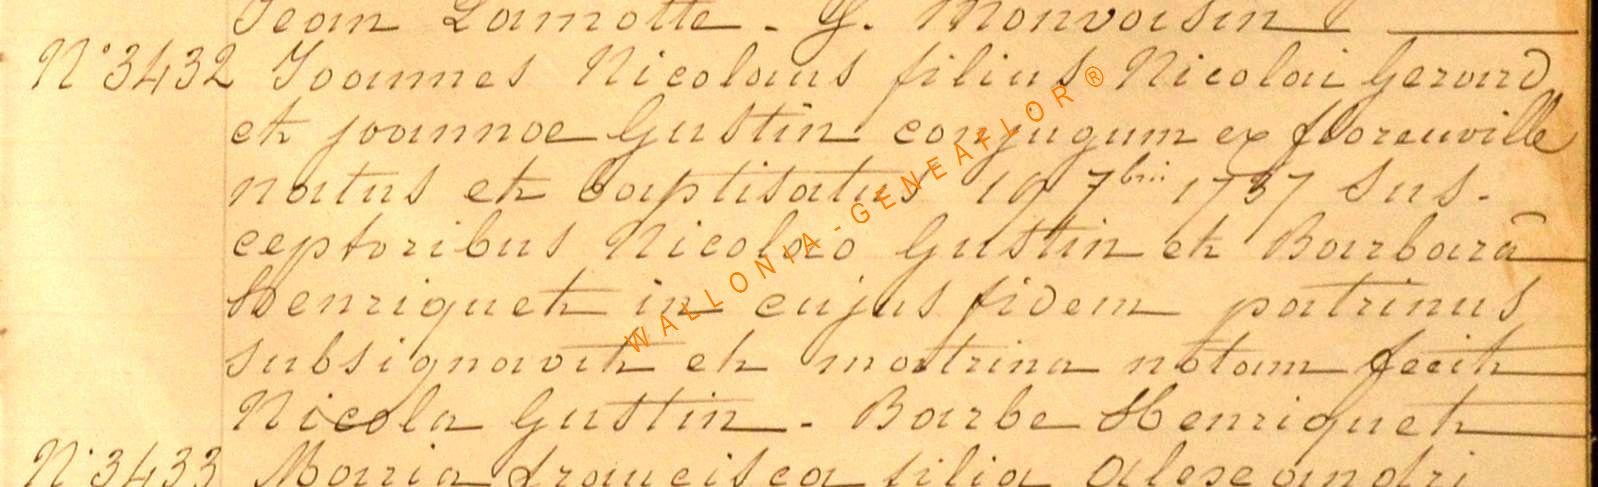 Jean Lamotte - G. Monvoisin
N° 3432 Joannes Nicolaus filius Nicolai Gerard
et joannae Gustin conjugum ex florenville
natus et baptisatus 19 7bris 1737 sus-
ceptoribus Nicolao Gustin et Barbara
Henriquet in cujus fidem patrinus
subsignavit et matrina notam fecit
Nicola Gustin - Barbe Henriquet
N° 3433 Maria francisca filia Alexandri
WALLONIA-GENEAFLOR®